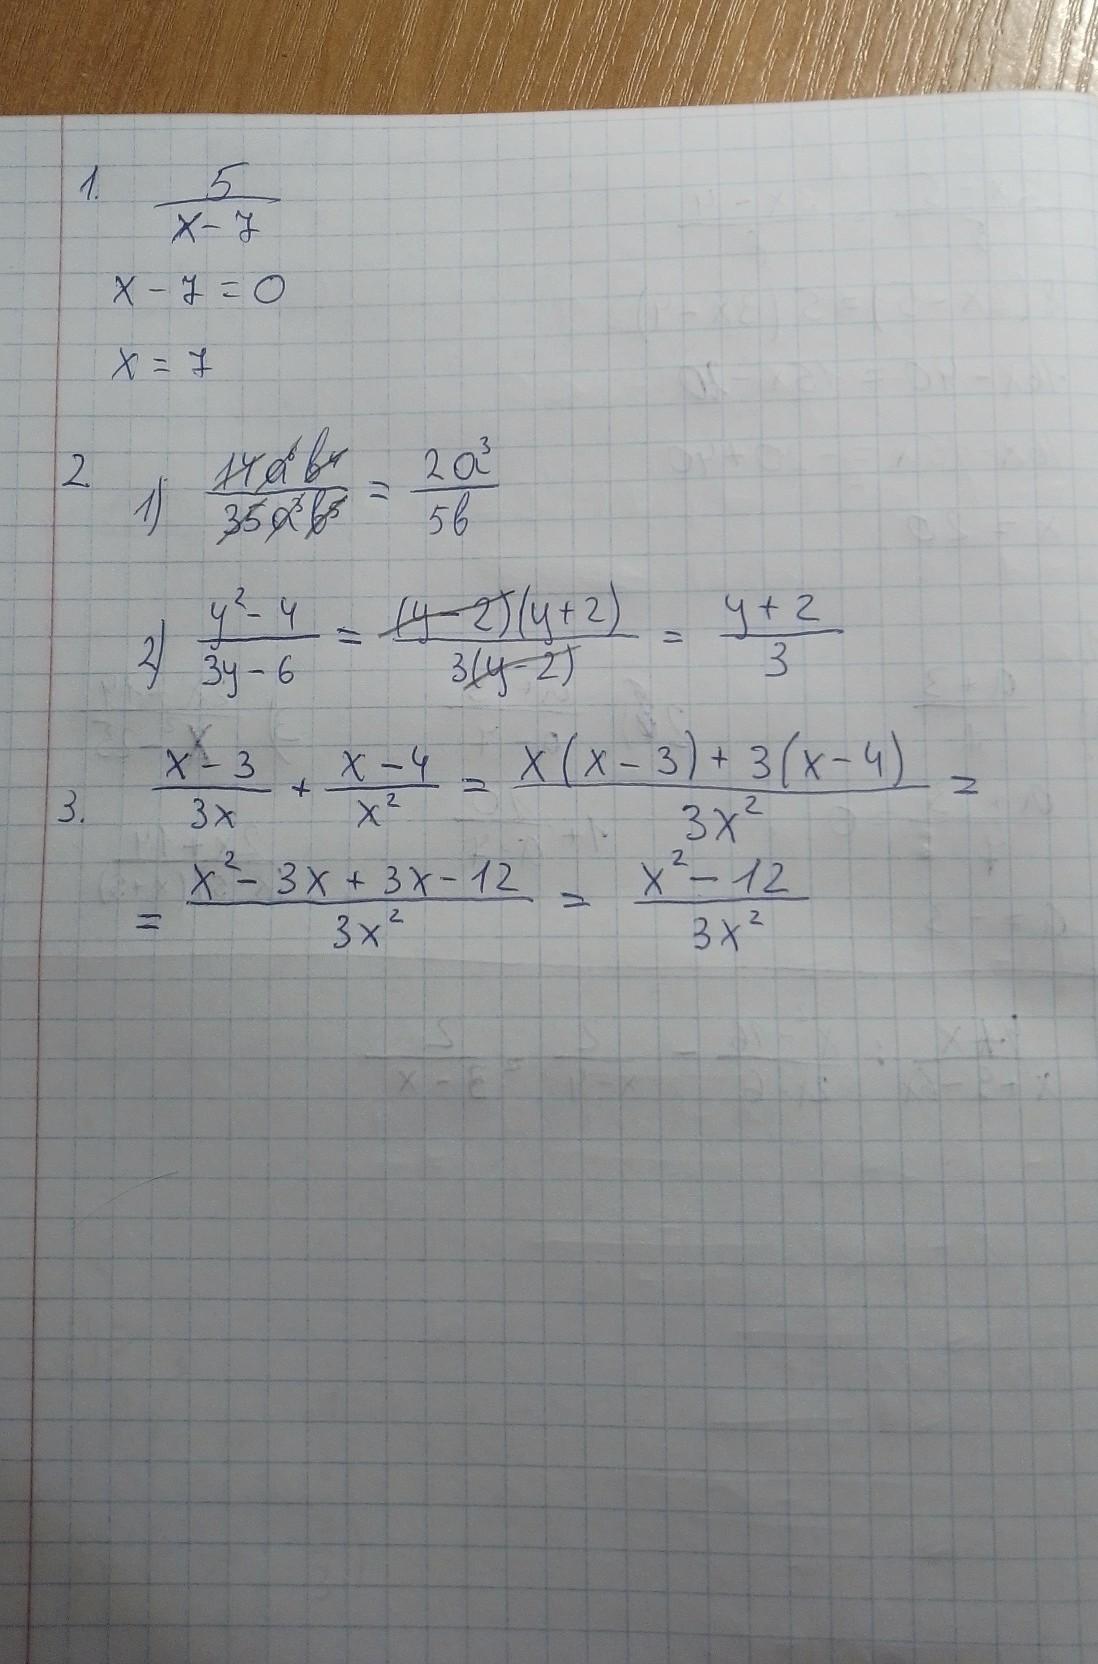 1. 5/(x-7)
x - 7 = 0
x = 7
2. 1) 14a⁶b⁴/35a³b⁵ = 2a³/5b
2) (y²-4)/(3y-6) = (y-2)(y+2)/3(y-2) = (y+2)/3
3. (x-3)/3x + (x-4)/x² = (x(x-3)+3(x-4))/3x² =
= (x²-3x+3x-12)/3x² = (x²-12)/3x²